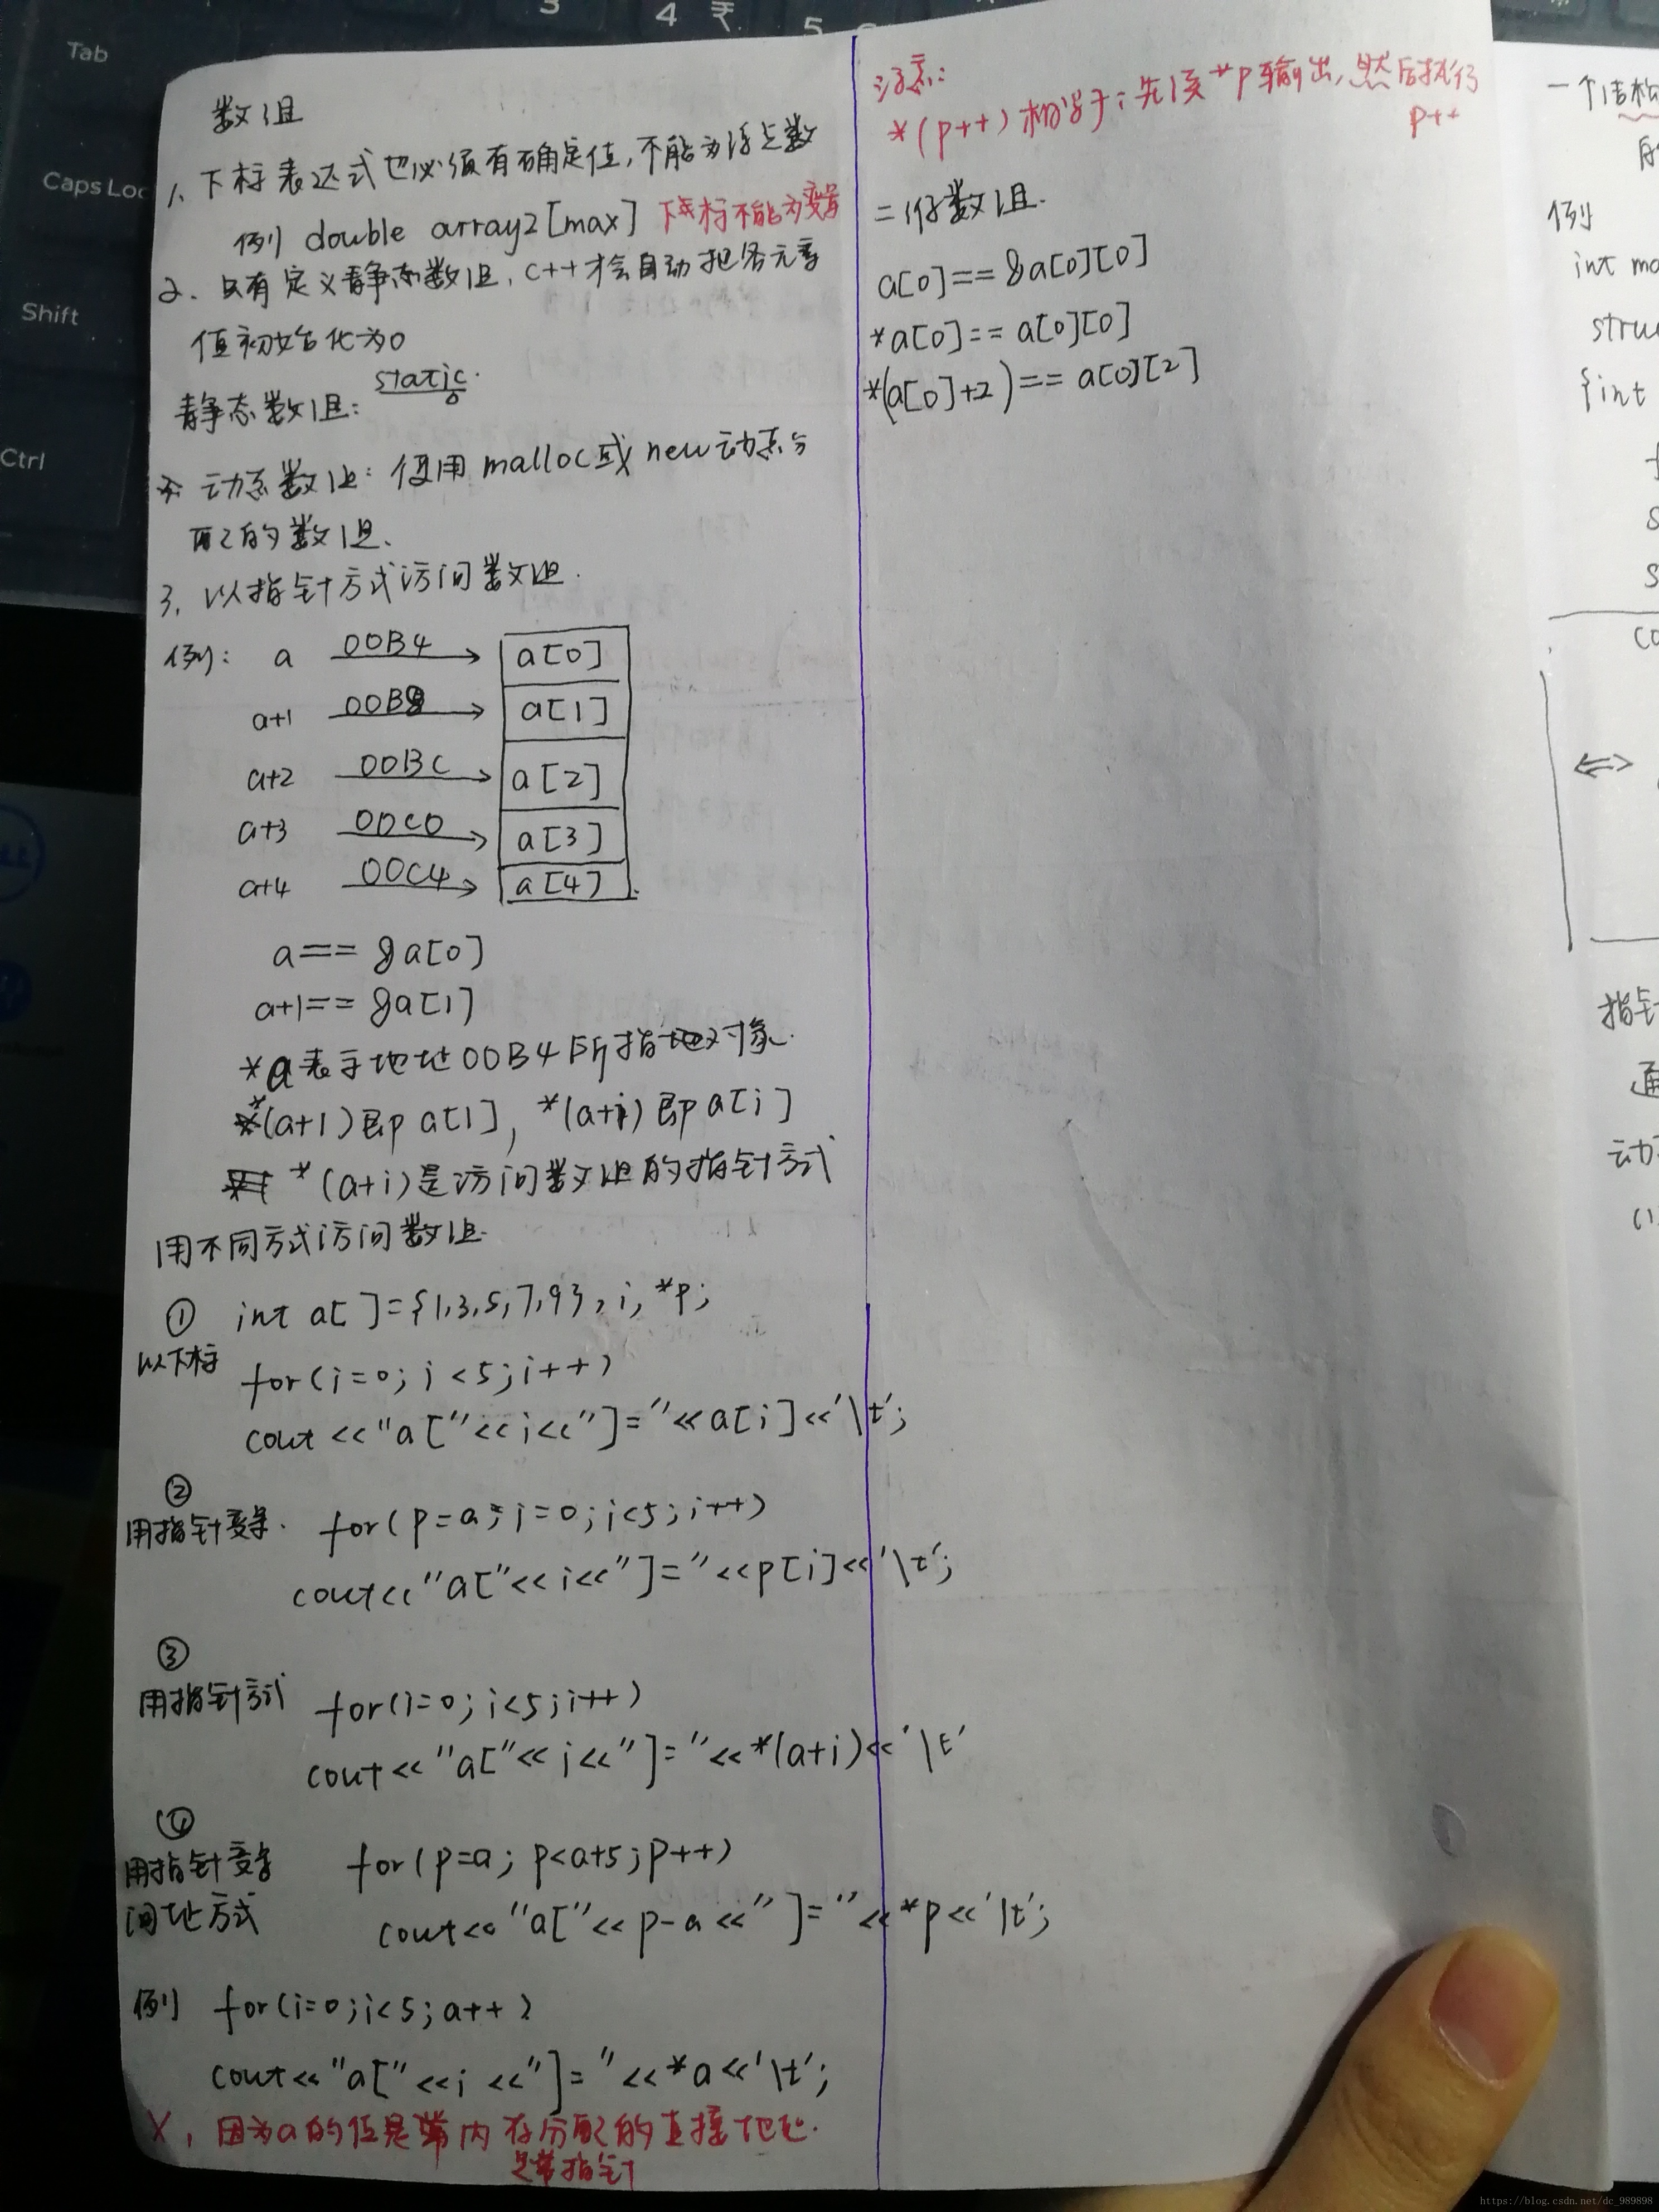 Tab
Caps Loc
Shift
Ctrl
3
4 ₹
5
数组
1、下标表达式也必须有确定值,不能为浮点数
例 double array2[max] 下标不能为变量
2、只有定义静态数组,c++才会自动把各元素
值初始化为0
静态数组: static
动态数组:使用malloc或new动态分
配的数组、
3、以指针方式访问数组.
例: a 00B4 a[0]
a+1 00B8 a[1]
a+2 00BC a[2]
a+3 00C0 a[3]
a+4 00C4 a[4]
a== &a[0]
a+1== &a[1]
*a表示地址00B4所指对象.
*(a+1)即a[1], *(a+i)即a[i]
*(a+i)是访问数组的指针方式
用不同方式访问数组.
① int a[ ]={1,3,5,7,9}, i, *p;
以下标
for(i=0; i<5; i++)
cout <<"a["<<i<<"]="<<a[i]<<'\t';
②
用指针变量. for(p=a; i=0; i<5; i++)
cout<<"a["<<i<<"]="<<p[i]<<'\t';
③
用指针方式 for(i=0; i<5; i++)
cout<<"a["<<i<<"]="<<*(a+i)<<'\t'
④
用指针变量 for(p=a; p<a+5; p++)
间址方式 cout<<"a["<<p-a<<"]="<<*p<<'\t';
例 for(i=0; i<5; a++)
cout<<"a["<<i<<"]="<<*a<<'\t';
X, 因为a的值是内存分配的直接地址.
是常指针
注意:
*(p++)相当于:先该*p输出,然后执行
p++
二维数组.
a[0]==&a[0][0]
*a[0]==a[0][0]
*(a[0]+2)==a[0][2]
一个结构
例
int ma
stru
{int
co
⇔
指针
通
动
(1
https://blog.csdn.net/dc_989898